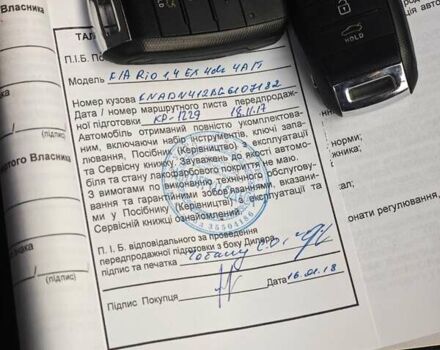 Власника
ТАЛ
П.І.Б. По
Модель KIA Rio 1.4
Номер кузова
Дата / номер маршрутного листа передпродаж-
ної підготовки КР-1229 18.11.17
Автомобіль отриманий повністю укомплектова-
ним, включаючи набір інструментів, ключі запа-
лювання, Посібник (Керівництво) з експлуатації
та Сервісну книжку. Зауважень до якості автомо-
біля та стану лакофарбового покриття не маю.
З вимогами по виконанню технічного обслуговування
та гарантійними зобов'язаннями, вказани-
ми у Посібнику (Керівництво) з експлуатації та
Сервісній книжці ознайомлений.
П. І. Б. відповідального за проведення
передпродажної підготовки з боку Дилера,
підпис та печатка
Дата 16.01.18
Підпис Покупця
(підпис)
HOLD
ртого Власника
нака
(підпис)
норми;
жника;
онати регулювання,
35504186